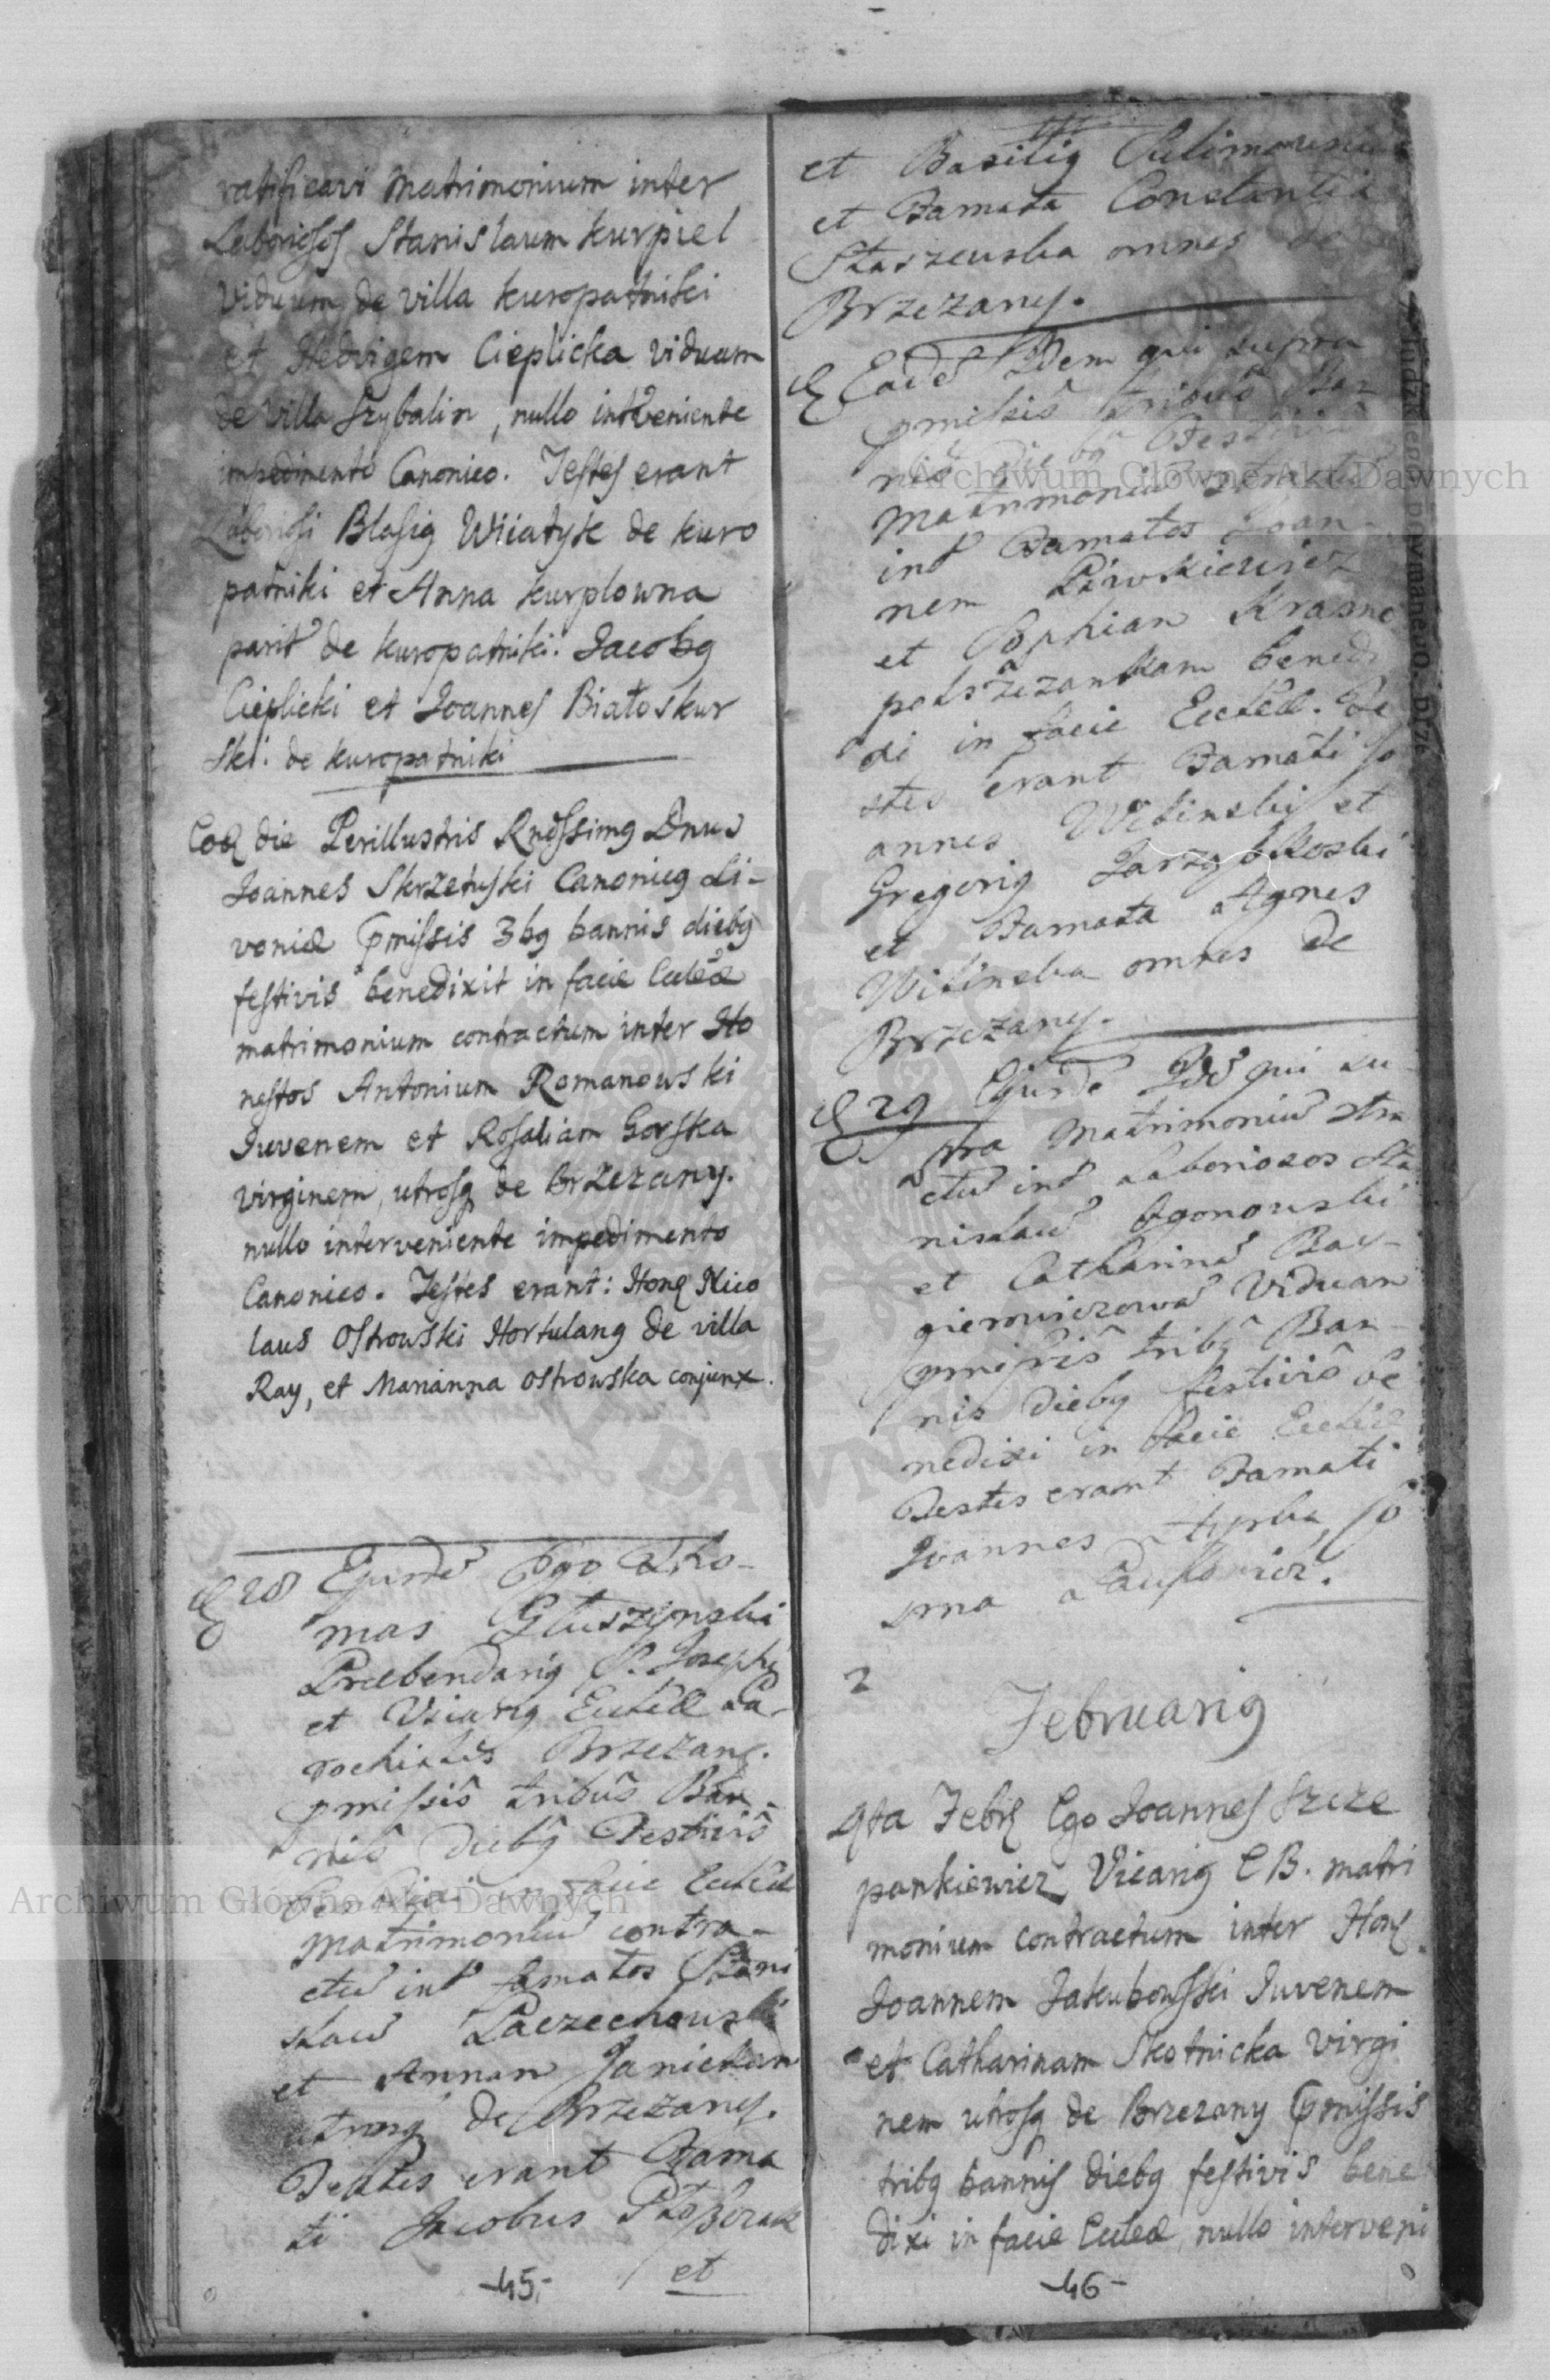 ratificavi Matrimonium inter
Laboriosos Stanislaum Kurpiel
Viduum de villa Kuropatniki
et Hedvigem Cieplicka viduam
de Villa Szybalin, nullo intveniente
impedimento Canonico. Testes erant
Laboriosi Blasig Wiiatyk de Kuro
patniki et Anna Kurplowna
parit de Kuropatniki. Jacobg
Cieplicki et Joannes Białoskur
ski. de Kuropatniki
Eod die Perillustris Rndssimg Dnus
Joannes Skrzetuski Canonicg Li-
voniæ pmissis 3bg bannis diebg
festivis benedixit in facie Eccleæ
matrimonium contractum inter Ho
nestos Antonium Romanowski
Juvenem et Rosaliam Gorska
virginem, utrosq de Brzezany.
nullo interveniente impedimento
Canonico. Testes erant: Hon Nico
laus Ostrowski Hortulang de villa
Ray, et Marianna Ostrowska conjunx.
28 Ejusde Ego Tho-
mas Głuszynski
Præbendarig S. Josephi
et Vicarig Eccleæ Pa-
rochialis Brzezan.
pmissis tribus Ban-
nis diebg Festivis
benedixi in facie Eccleæ
Matrimoniu contra-
ctu int famatos Stani
slau Paczechowski
et Annan Janickan
utrosq de Brzezany.
Testes erant Fama
ti Jacobus
et
-45-
et Basilig
et Famata Constantia
Staszewska omnes de
Brzezany.
Eade Idem qui supra
pmissis tribus Ban-
nis Festivis
Matrimoniu
int Famatos Joan-
nem Piwskiewicz
et Sophian Krasno
polszczankam bened
xi in facie Eccleæ. Te
stes erant Famati Jo
annes Witinski et
Gregorig Jarzębkoski
et Famata Agnes
Witinska omnes de
Brzezany.
29 Ejusde Ide qui su
pra Matrimoniu ctra
ctu int Laboriosos Sta
nislau Ogonouski
et Catharina Bac-
gierowiczowa Viduan
pmissis tribg Ban-
nis diebg festivis be
nedixi in facie Eccleæ
Testes erant Famati
Joannes
2
Februarig
4ta Febr Ego Joannes Szcze
pankiewicz Vicarig E B. matri
monium contractum inter Hon
Joannem Jakubowski Juvenem
et Catharinam Skotnicka Virgi
nem utrosq de Brzezany pmissis
tribg bannis diebg festivis bene
dixi in facie Eccleæ, nullo interveni
-46-
Archiwum Główne Akt Dawnych
Archiwum Główne Akt Dawnych